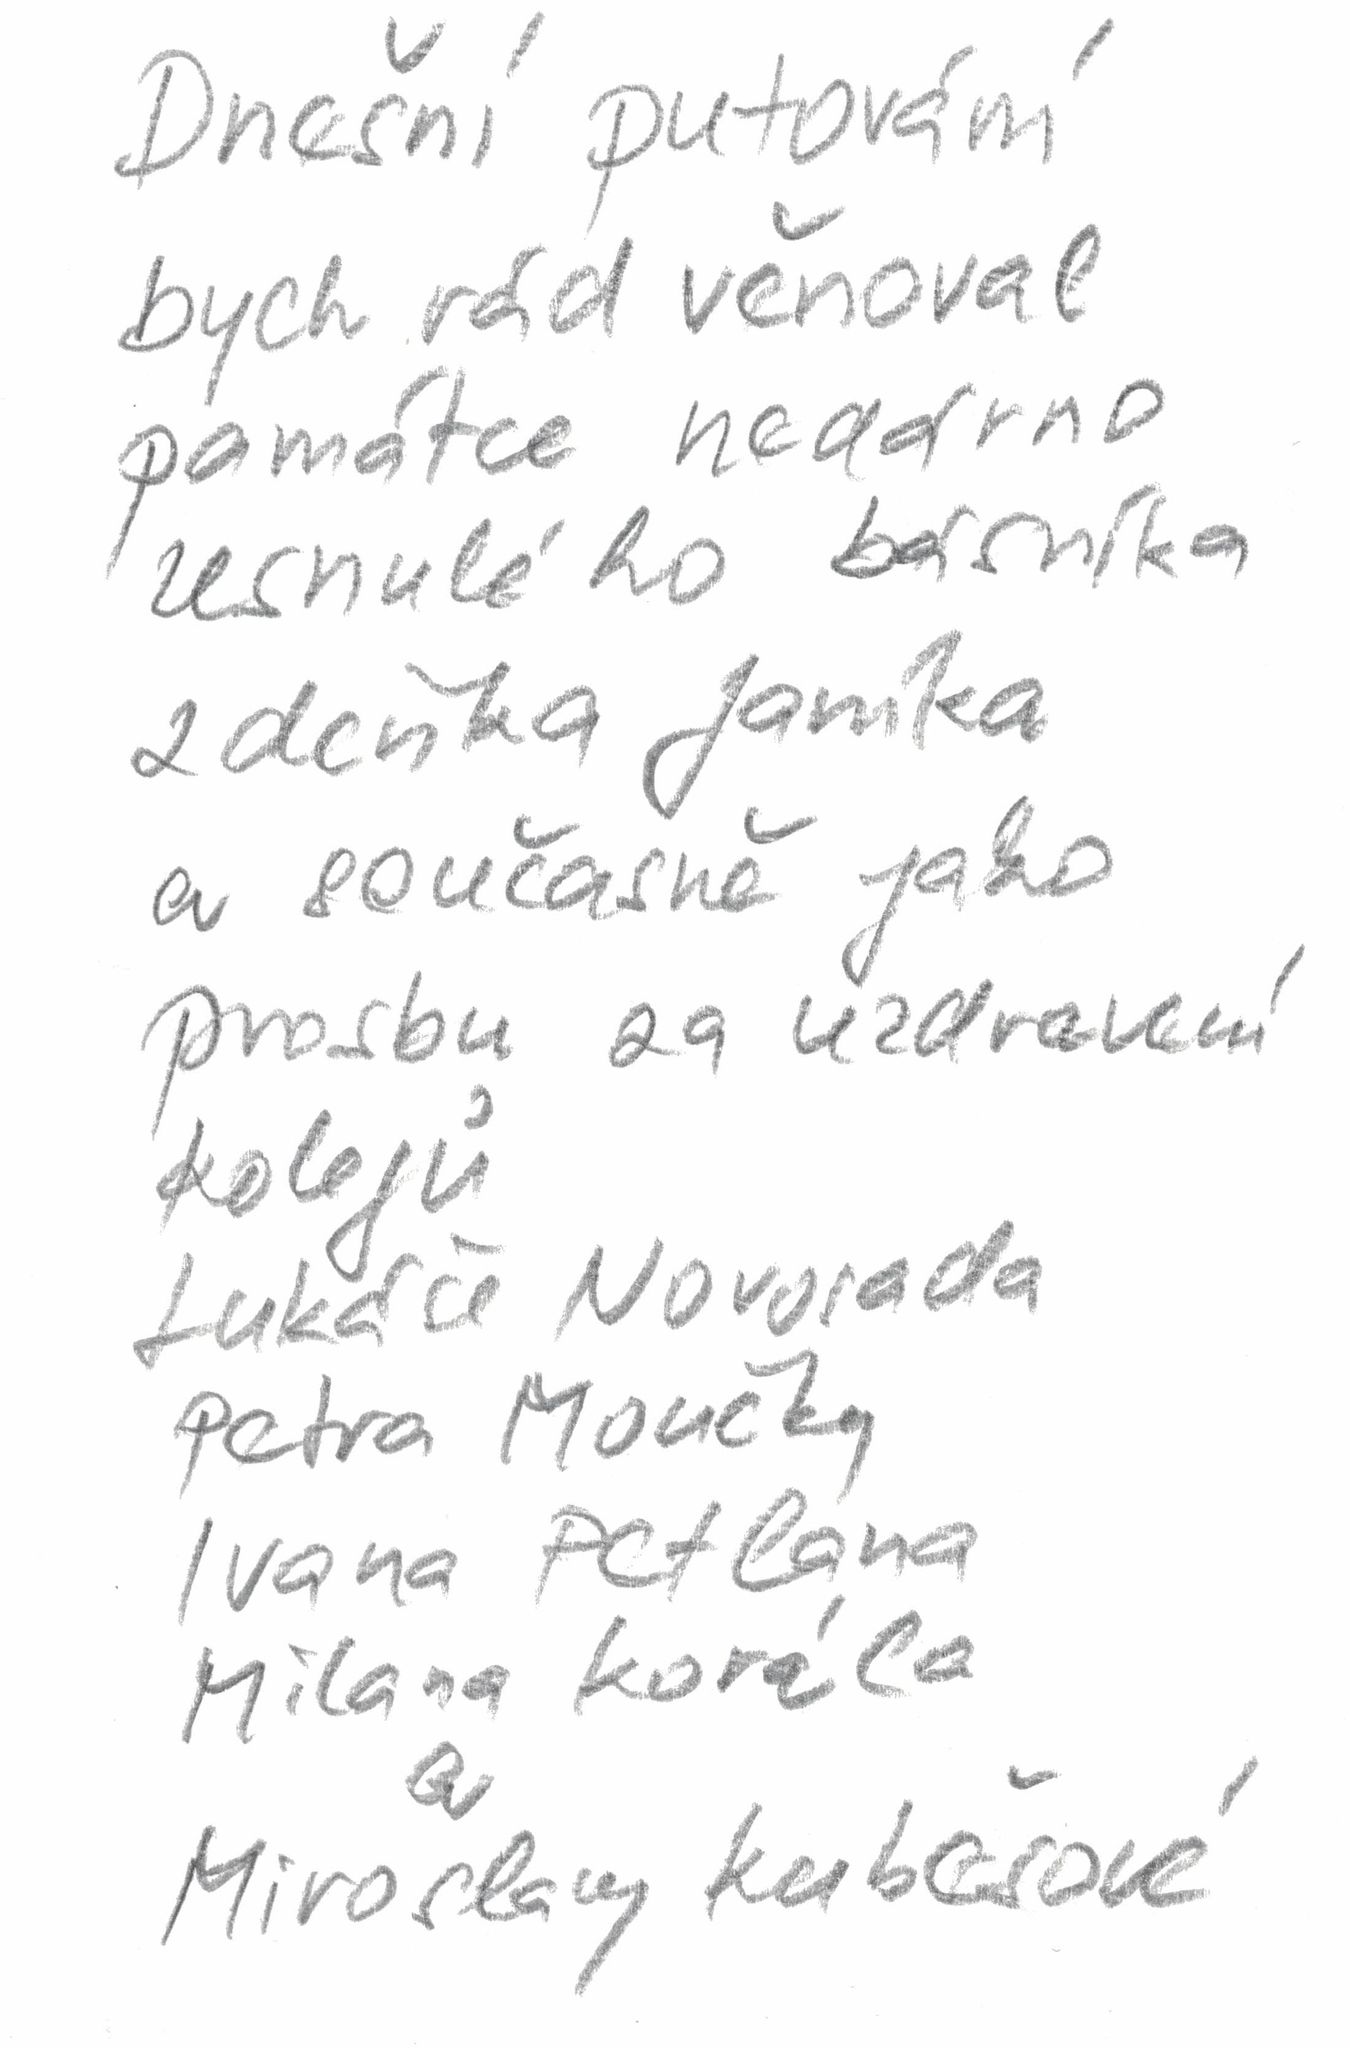 Dnešní putování
bych rád věnoval
památce nedávno
zesnulého básníka
Zdeňka Janíka
a současně jako
prosbu za uzdravení
kolegů
Lukáše Novosada
Petra Moučky
Ivana Petlana
Milana Korála
a
Miroslavy Kubešové